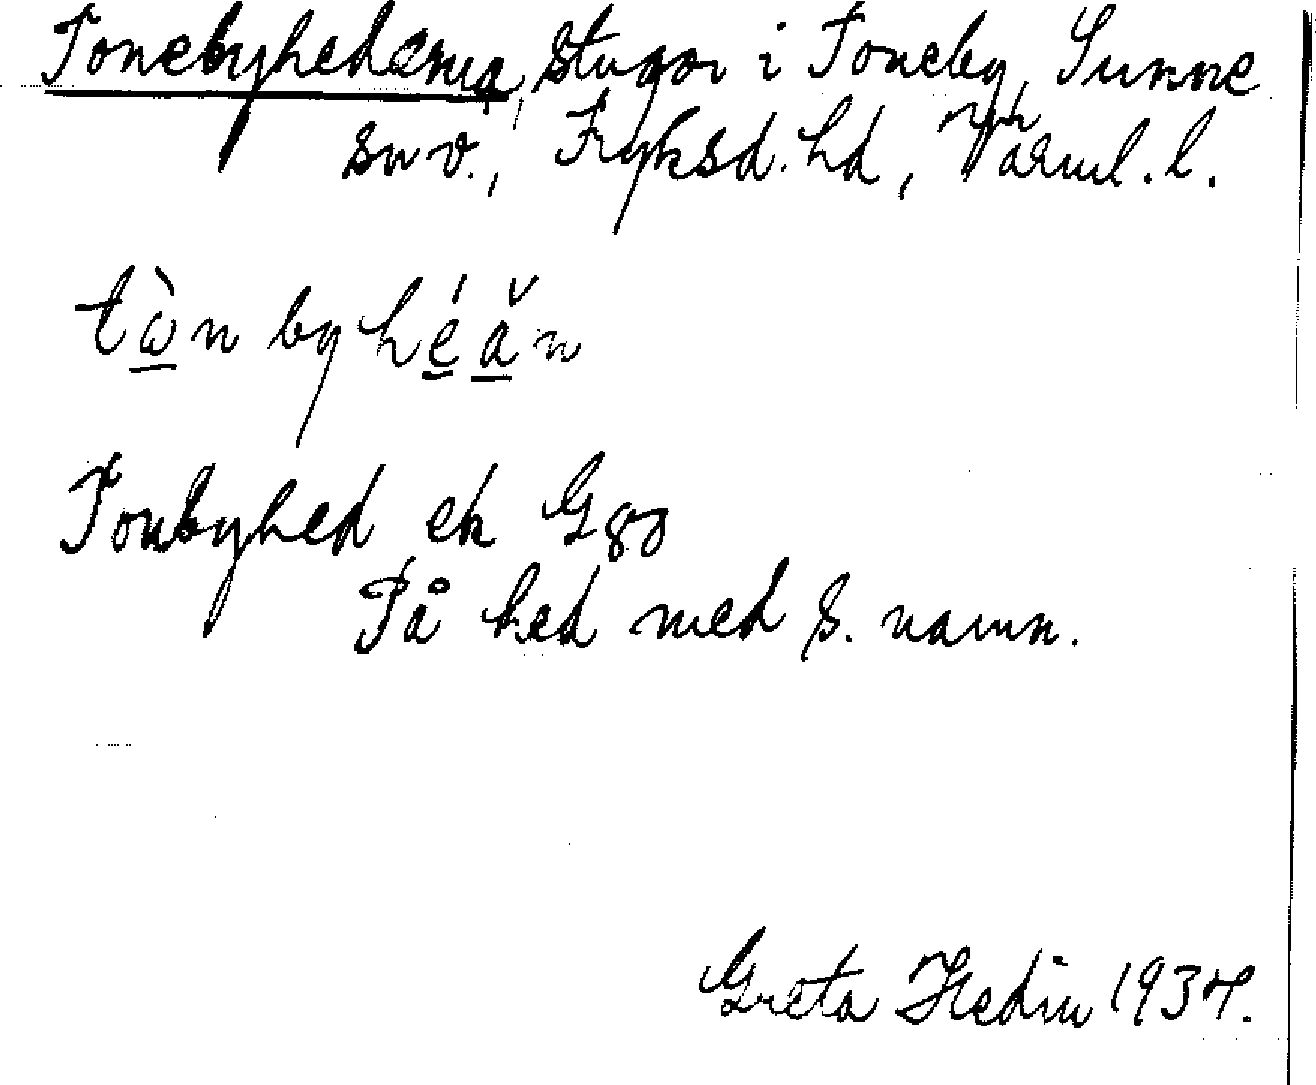 Tonebyhedarna, stugor i Toneby, Sunne
sn v., Fryksd. hd, Värml. l.
tὼn byhéǎn
Tonbyhed ek G 80
På hed med s. namn.
Greta Hedin 1934.